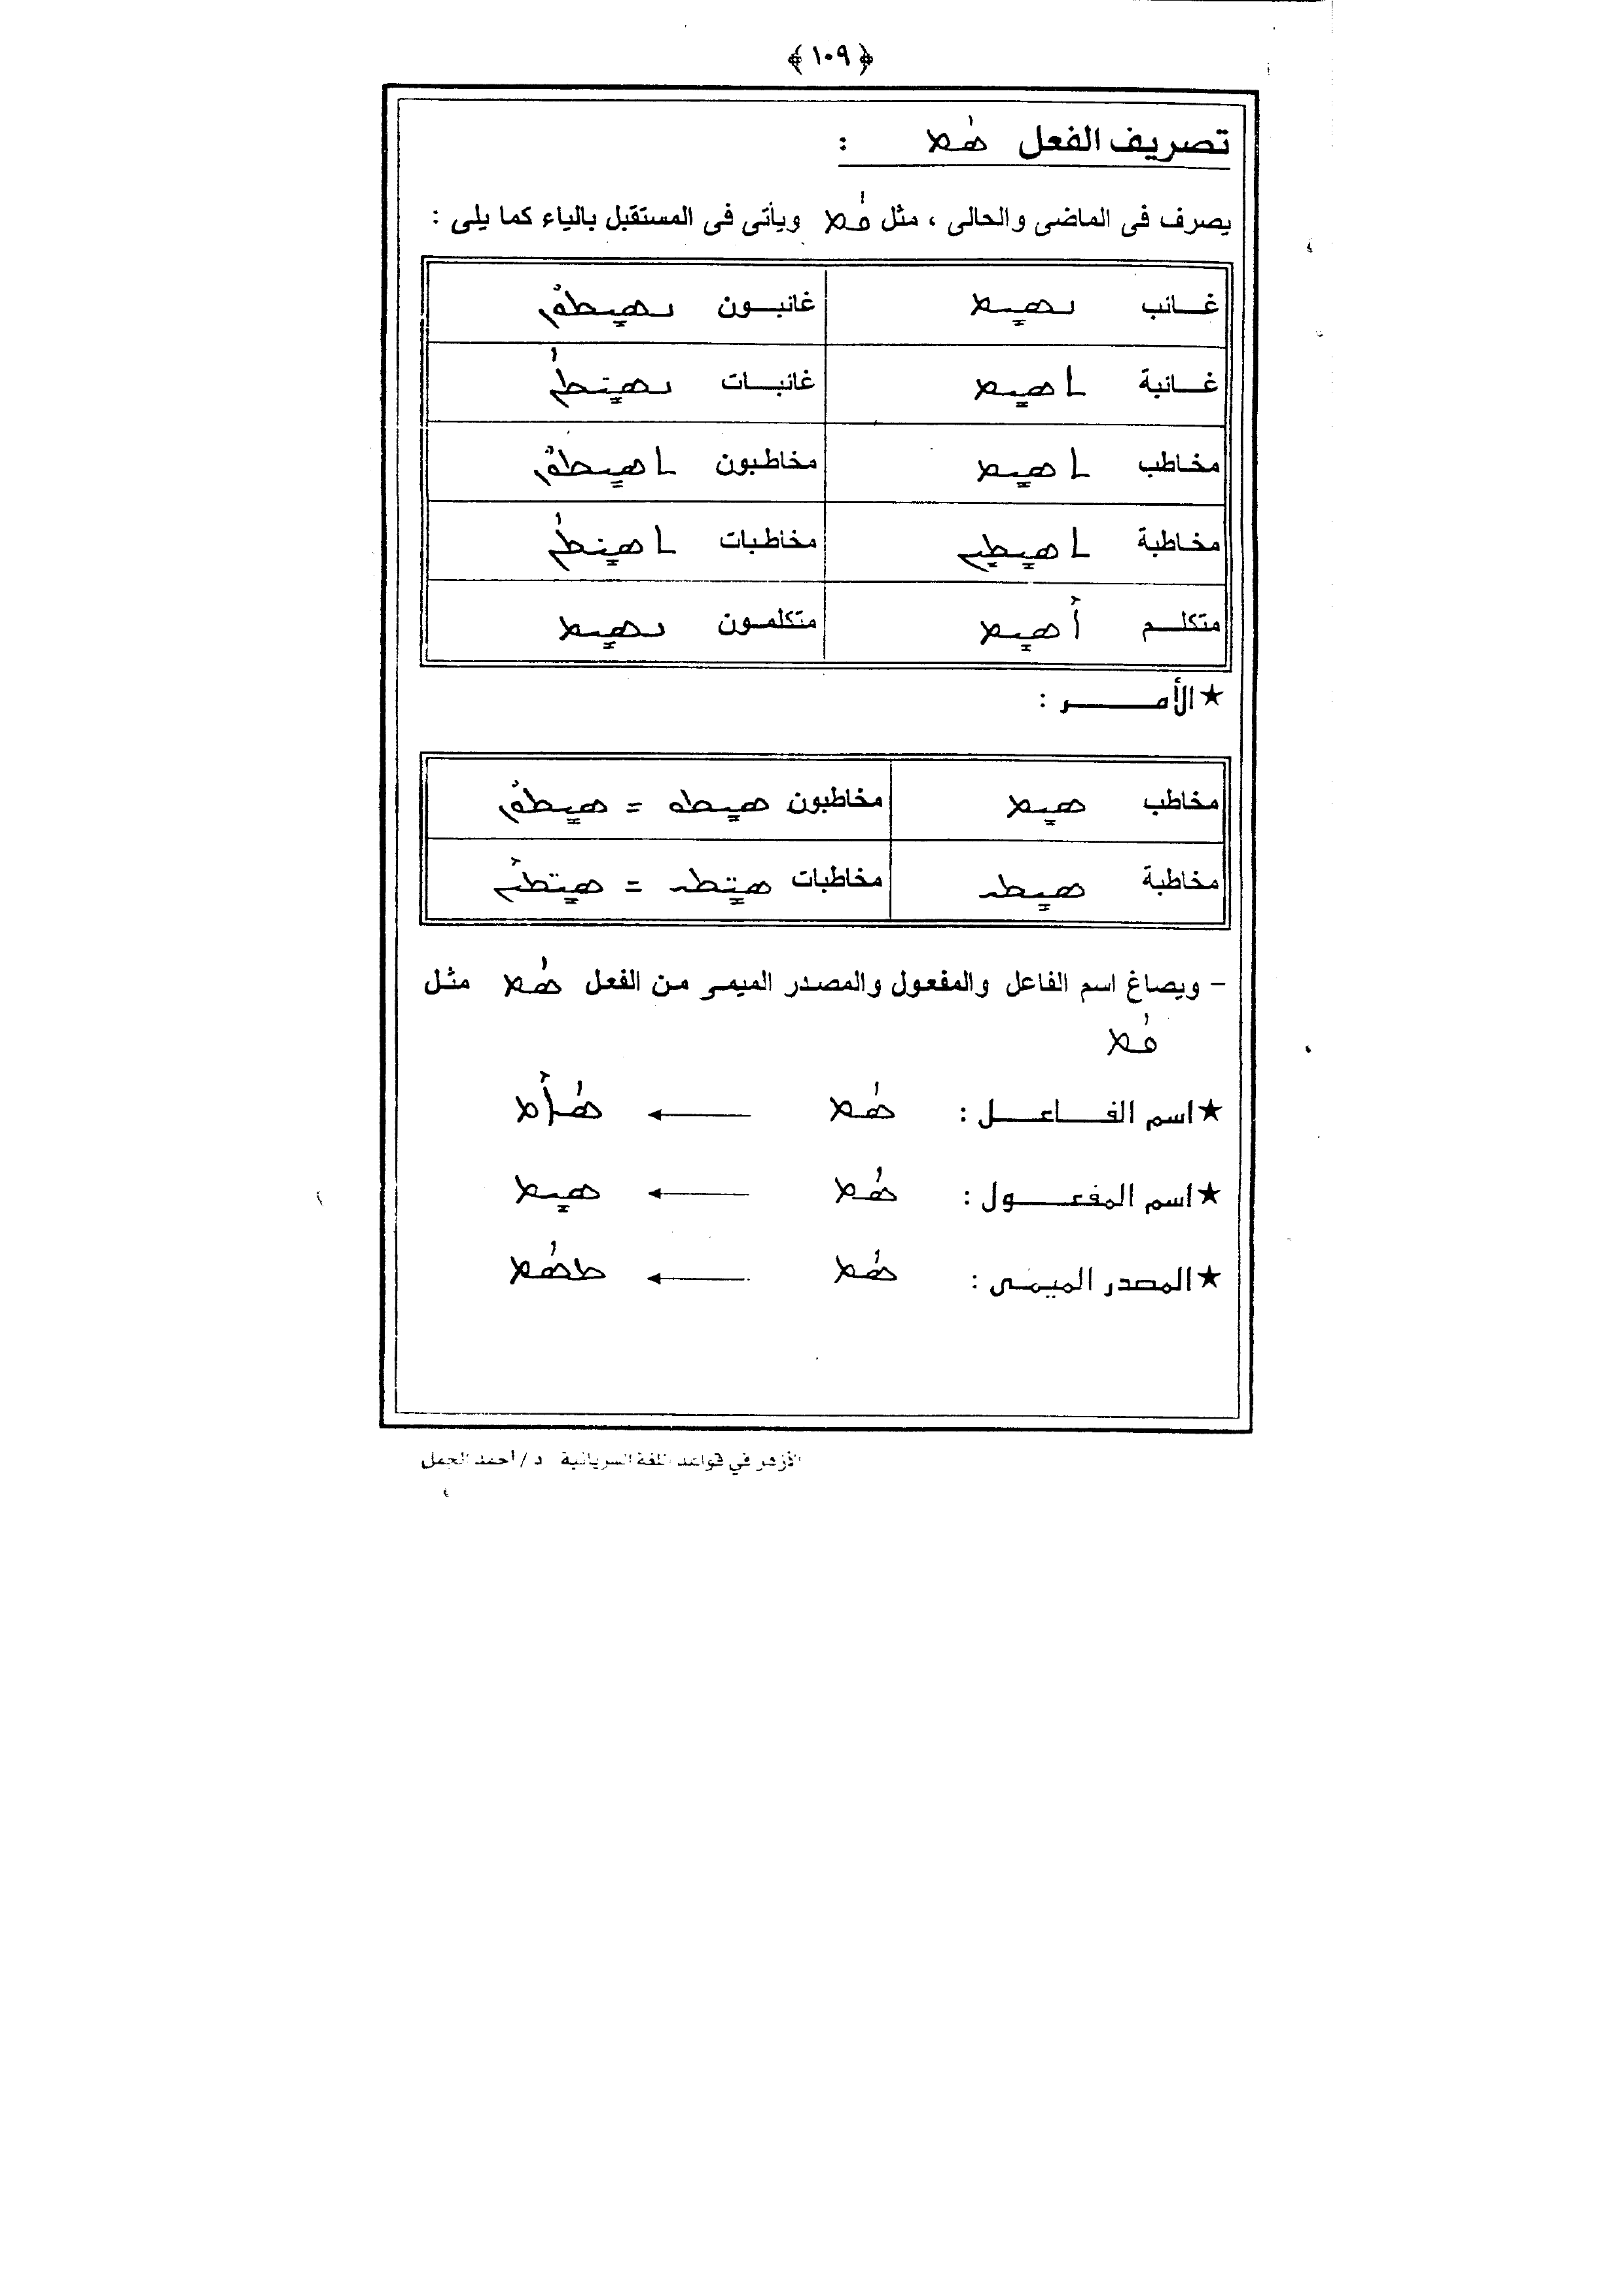 ﴿١٠٩﴾
تصريف الفعل ܣܳܡ :
يصرف فى الماضى والحالى ، مثل ܩܳܡ ويأتى فى المستقبل بالياء كما يلى :
غائب ܢܣܝܻܡ غائبون ܢܣܝܻܡܘܽܢ
غائبة ܬܣܝܻܡ غائبات ܢܣܝܻ̈ܡܳܢ
مخاطب ܬܣܝܻܡ مخاطبون ܬܣܝܻܡܘܽܢ
مخاطبة ܬܣܝܻܡܝܻܢ مخاطبات ܬܣܝܻ̈ܡܳܢ
متكلم ܐܶܣܝܻܡ متكلمون ܢܣܝܻܡ
★ الأمر :
مخاطب ܣܝܻܡ مخاطبون ܣܝܻܡܘ = ܣܝܻܡܘܽܢ
مخاطبة ܣܝܻܡܝ مخاطبات ܣܝܻ̈ܡܝ = ܣܝܻ̈ܡܶܝܢ
- ويصاغ اسم الفاعل والمفعول والمصدر الميمى من الفعل ܣܳܡ مثل
ܩܳܡ
★ اسم الفاعل : ܣܳܡ ← ܣܳܐܶܡ
★ اسم المفعول : ܣܳܡ ← ܣܝܻܡ
★ المصدر الميمى : ܣܳܡ ← ܡܣܳܡ
الأزهر في قواعد اللغة السريانية د/أحمد الجمل